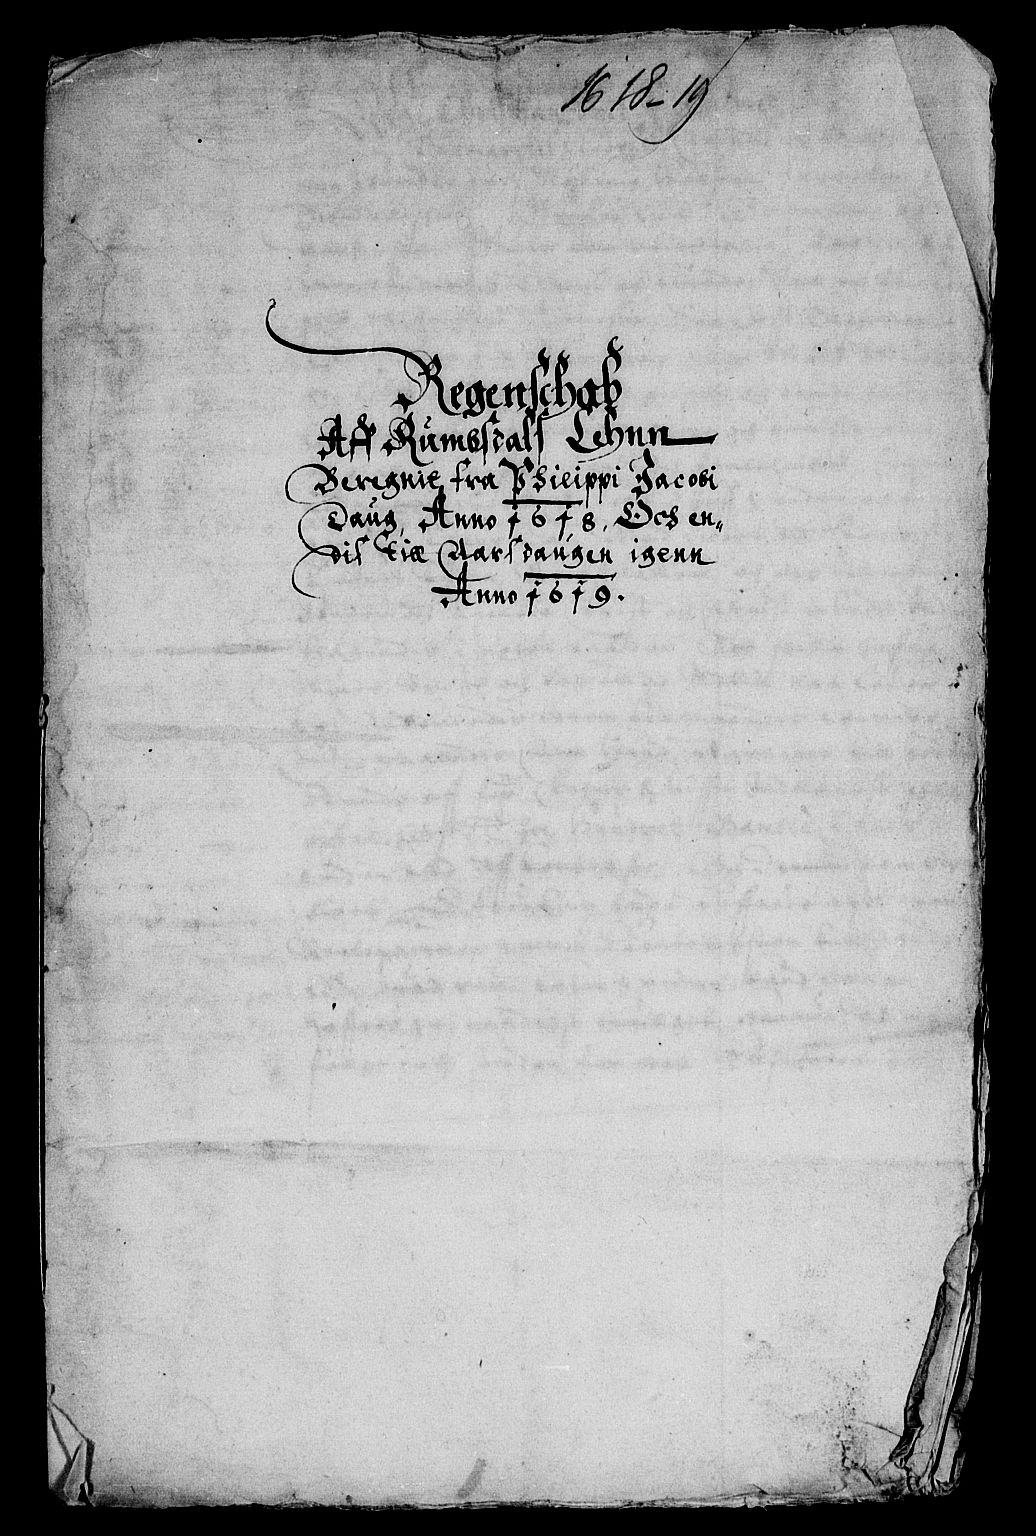 1618-19
Regenschab
Aff Rumbsdals Lehnn
Beregnit fra Philippi Jacobi
Daug, Anno 1618, Och en„
dis till Aarsdaugen igenn
Anno 1619.